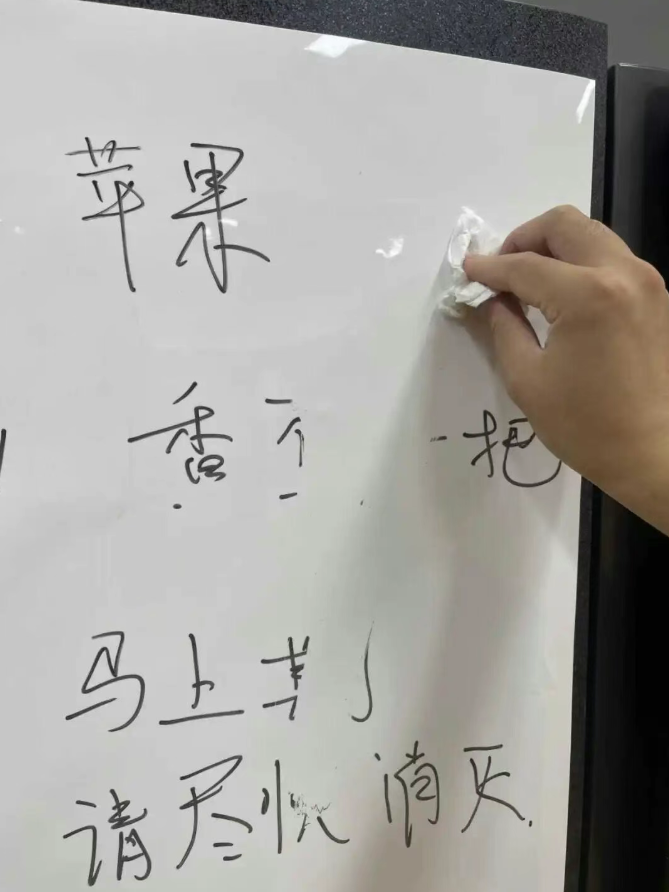 苹果
香 一把
马上
请尽快消灭.